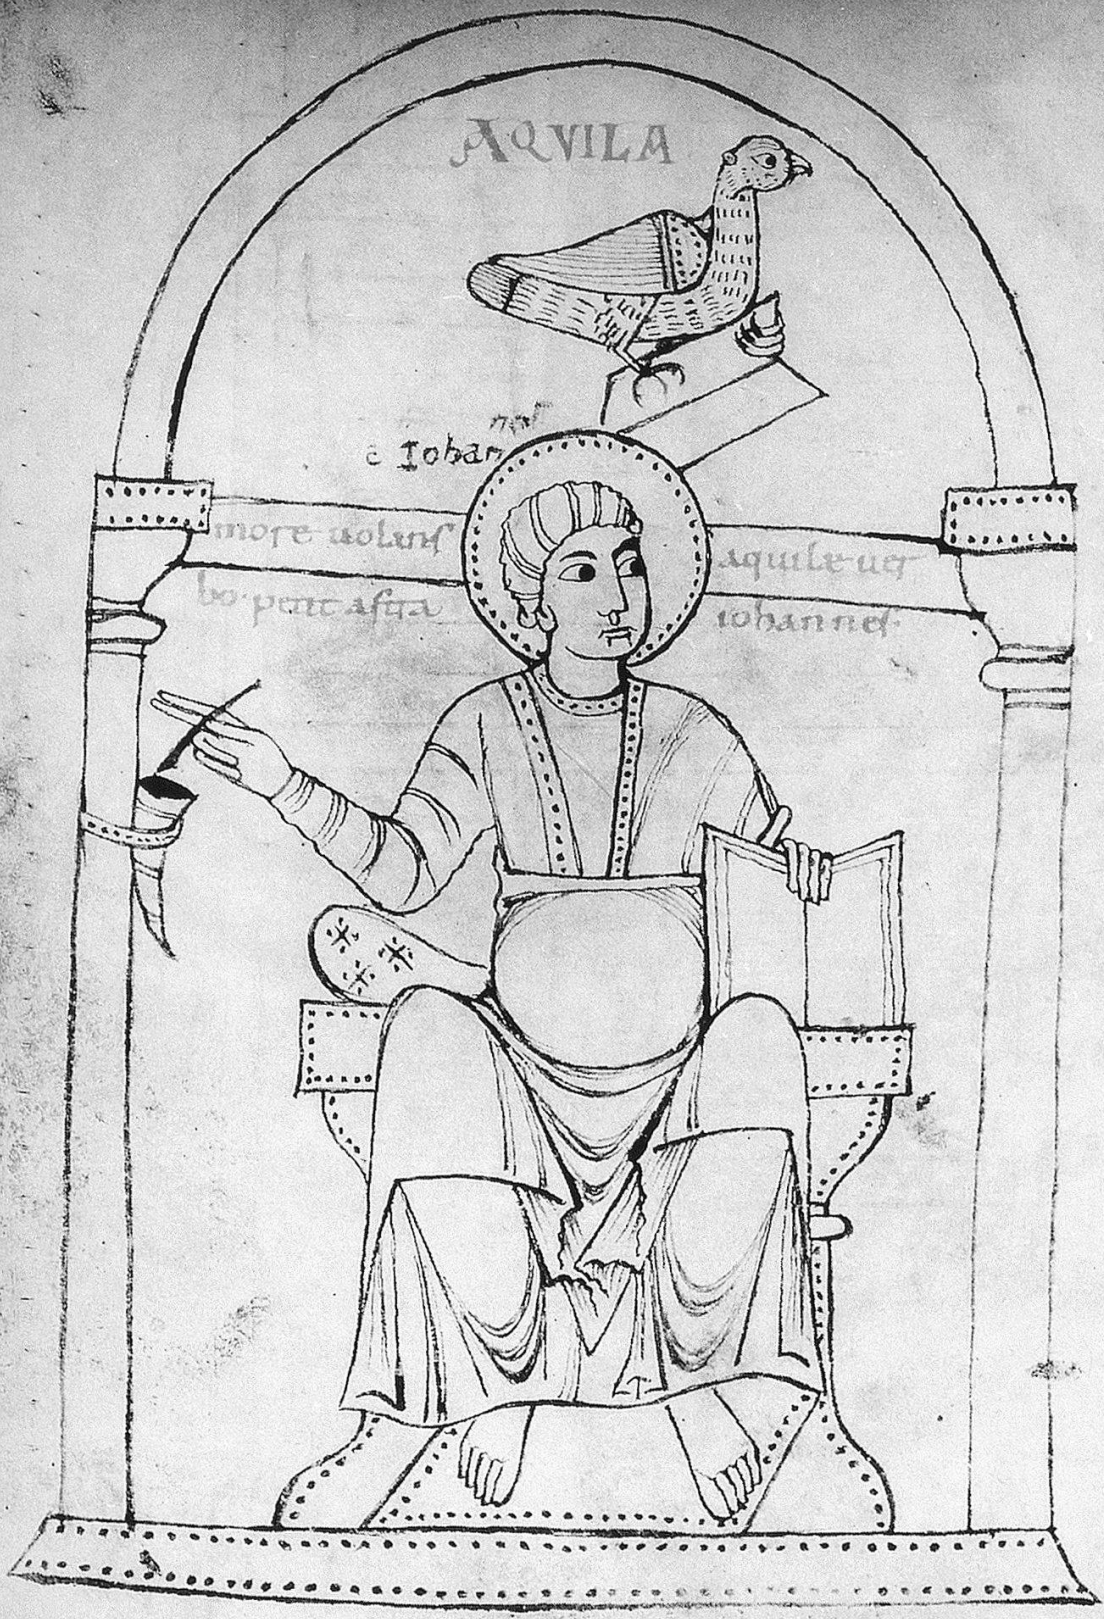 AQVILA
Iohan
nes
more uolans aquilae uer
bo petit astra iohannes.